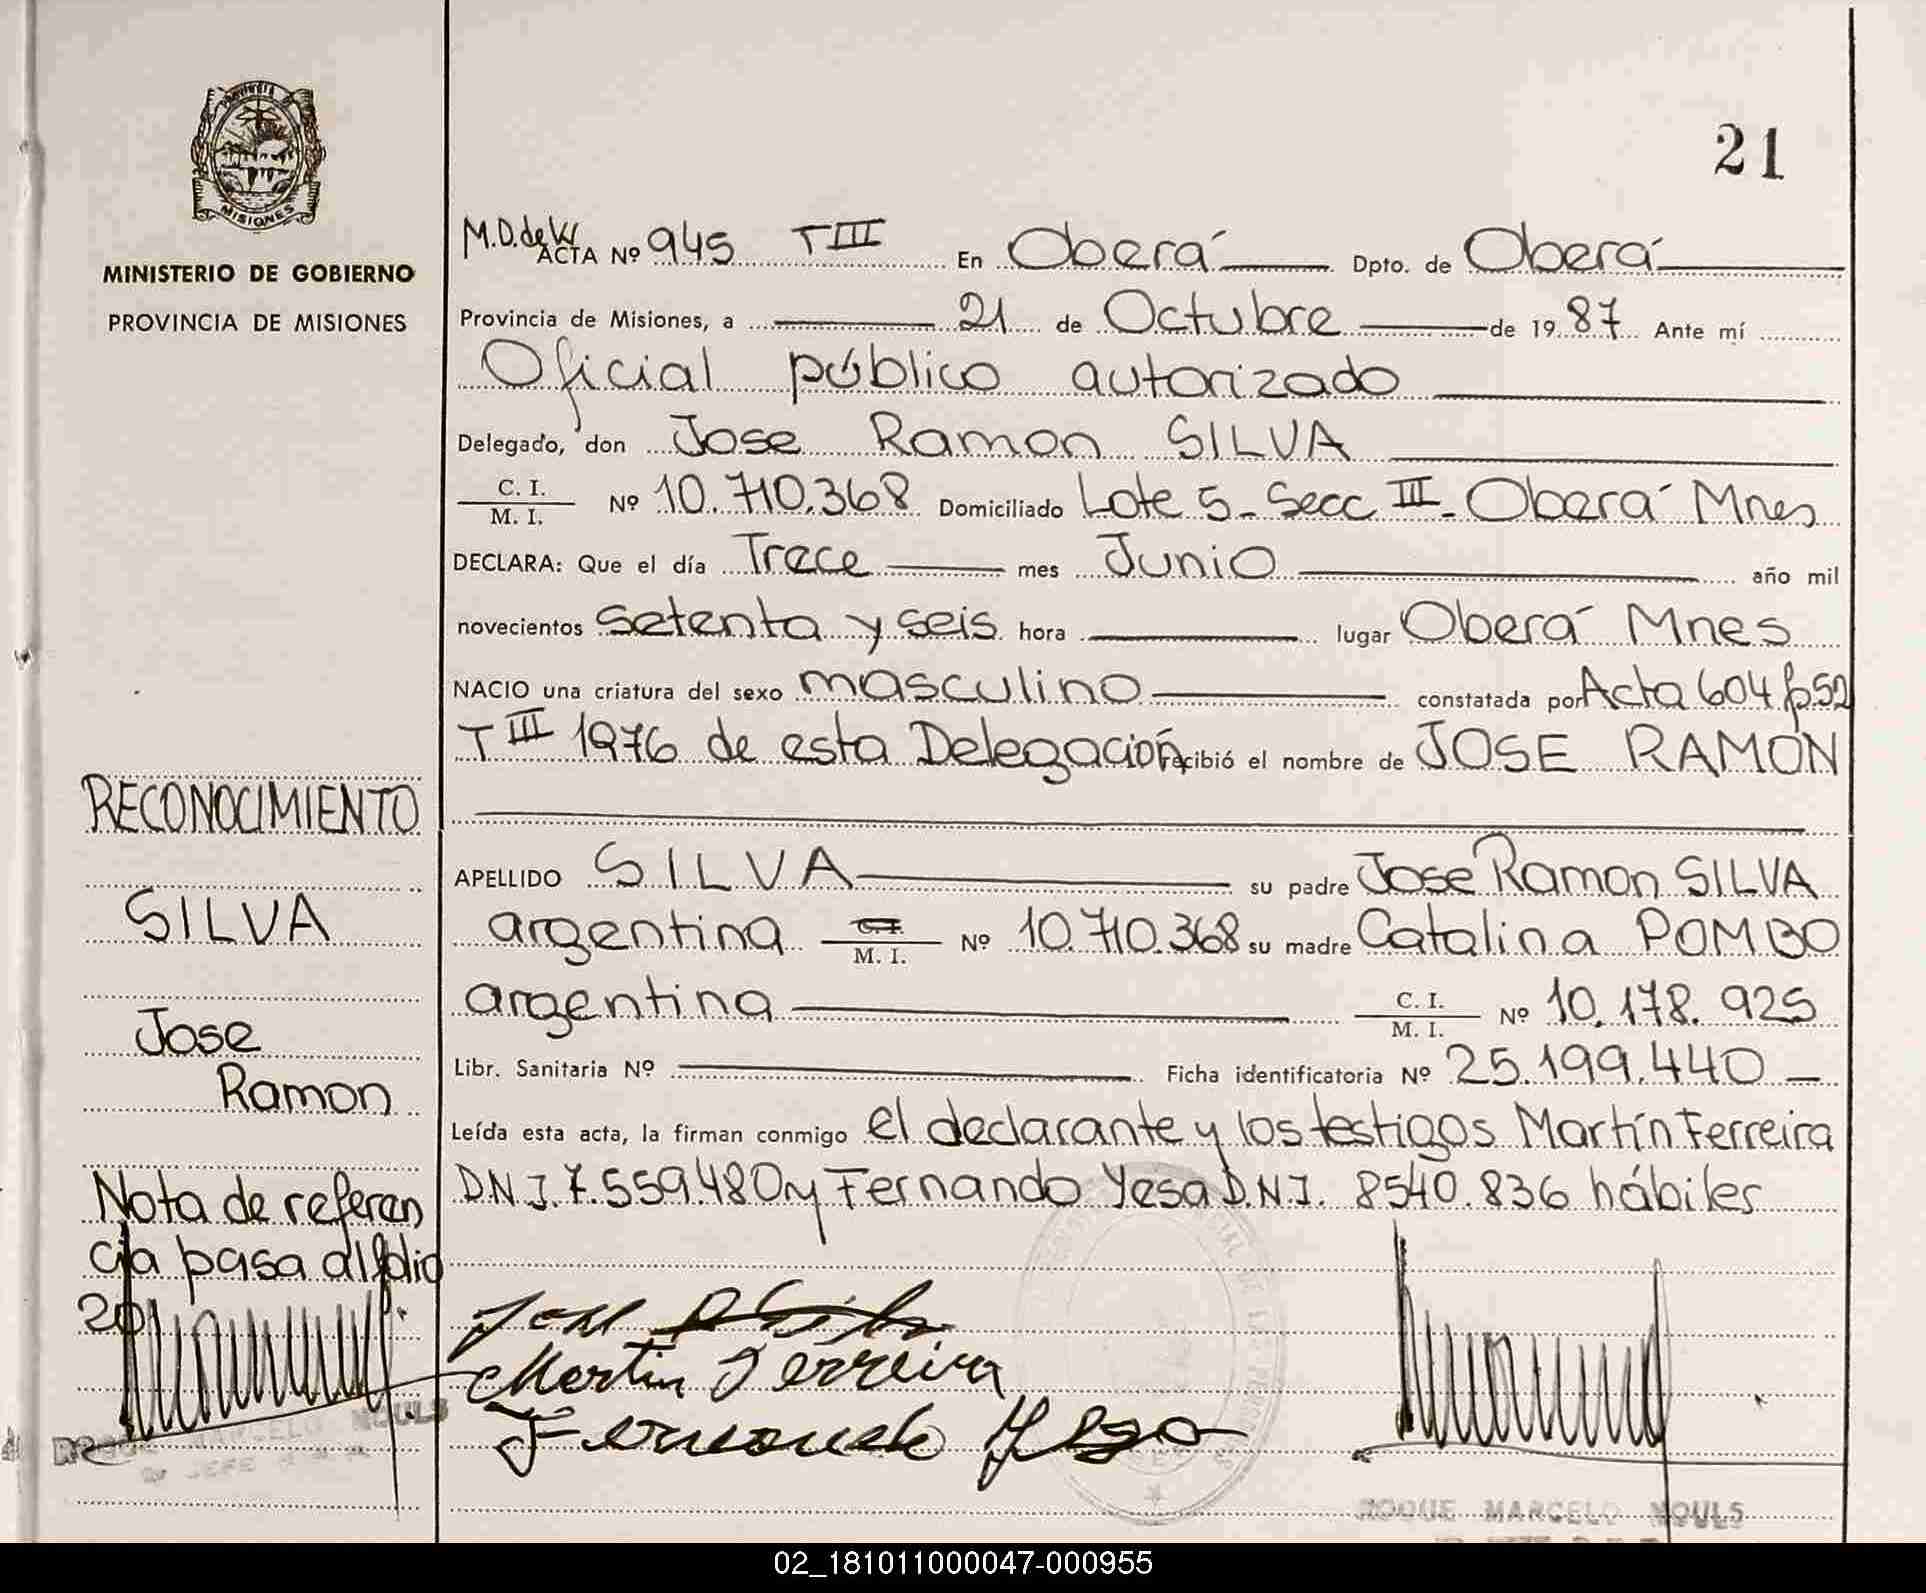 21
PROVINCIA DE
MISIONES
MINISTERIO DE GOBIERNO
PROVINCIA DE MISIONES
M.D.de W
ACTA Nº 945 T III En Oberá Dpto. de Oberá
Provincia de Misiones, a 21 de Octubre de 1987 Ante mí
Oficial público autorizado
Delegado, don Jose Ramon SILVA
C. I.
M. I.
Nº 10.710.368 Domiciliado Lote 5 - Secc III - Oberá Mnes
DECLARA: Que el día Trece mes Junio año mil
novecientos setenta y seis hora lugar Oberá Mnes
NACIO una criatura del sexo masculino constatada por Acta 604 fo 52
T III 1976 de esta Delegación recibió el nombre de JOSE RAMON
APELLIDO SILVA su padre Jose Ramon SILVA
argentina C. I. M. I. Nº 10.710.368 su madre Catalina POMBO
argentina C. I. M. I. Nº 10.178.925
Libr. Sanitaria Nº Ficha identificatoria Nº 25.199.440
Leída esta acta, la firman conmigo el declarante y los testigos Martín Ferreira
D.N.I. 7.559.480 y Fernando Yesa D.N.I. 8540.836 hábiles
Jose R Silva
Martin Ferreira
Fernando Yesa
ROQUE MARCELO MOULS
RECONOCIMIENTO
SILVA
Jose
Ramon
Nota de referen
cia pasa al folio
20
ROQUE MARCELO MOULS
JEFE
02_181011000047-000955